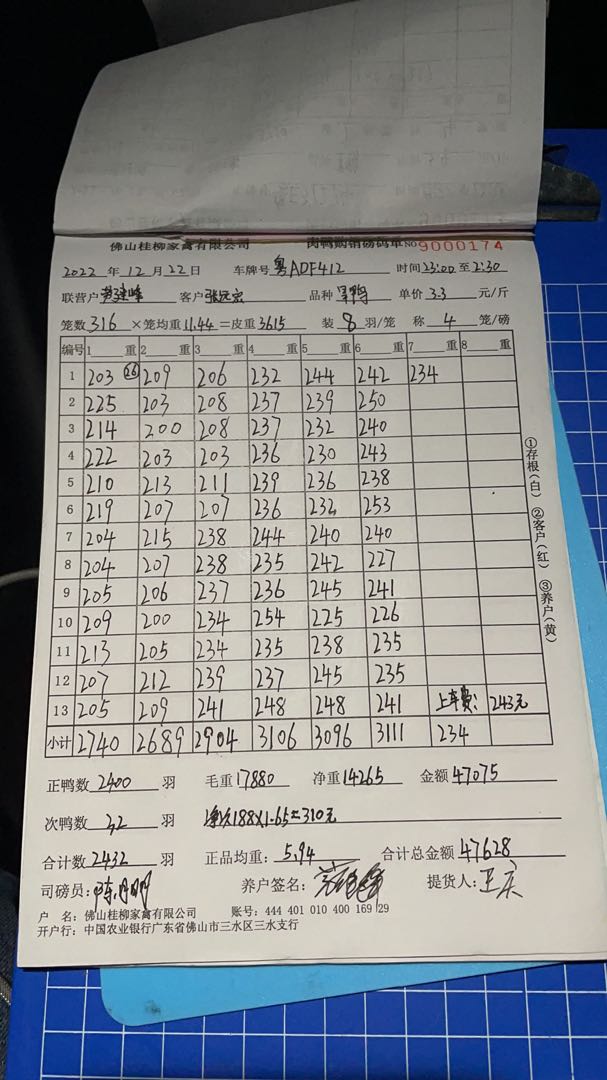 佛山桂柳家禽有限公司 肉鸭购销磅码单 NO 9000174
2022 年 12 月 22 日 车牌号 粤ADF412 时间 23:00 至 2:30
联营户 客户 张远宏 品种 单价 3.3 元/斤
笼数 316 ×笼均重 11.44 =皮重 3615 装 8 羽/笼 称 4 笼/磅
编号 1 重 2 重 3 重 4 重 5 重 6 重 7 重 8 重
1 203 26 209 206 232 244 242 234
2 225 203 208 237 239 250
3 214 200 208 237 232 240
4 222 203 203 236 230 243
5 210 213 211 239 236 238
6 219 207 207 236 232 253
7 204 215 238 244 240 240
8 204 207 238 235 242 227
9 205 206 237 236 245 241
10 209 200 234 254 225 226
11 213 205 234 235 238 235
12 207 212 239 237 245 235
13 205 209 241 248 248 241 上车费: 243元
小计 2740 2689 2904 3106 3096 3111 234
①存根(白) ②客户(红) ③养户(黄)
正鸭数 2400 羽 毛重 17880 净重 14265 金额 47075
次鸭数 32 羽 188×1.65=310元
合计数 2432 羽 正品均重: 5.94 合计总金额 47628
司磅员: 养户签名: 提货人:
户 名: 佛山桂柳家禽有限公司 账号: 444 401 010 400 169 29
开户行: 中国农业银行广东省佛山市三水区三水支行